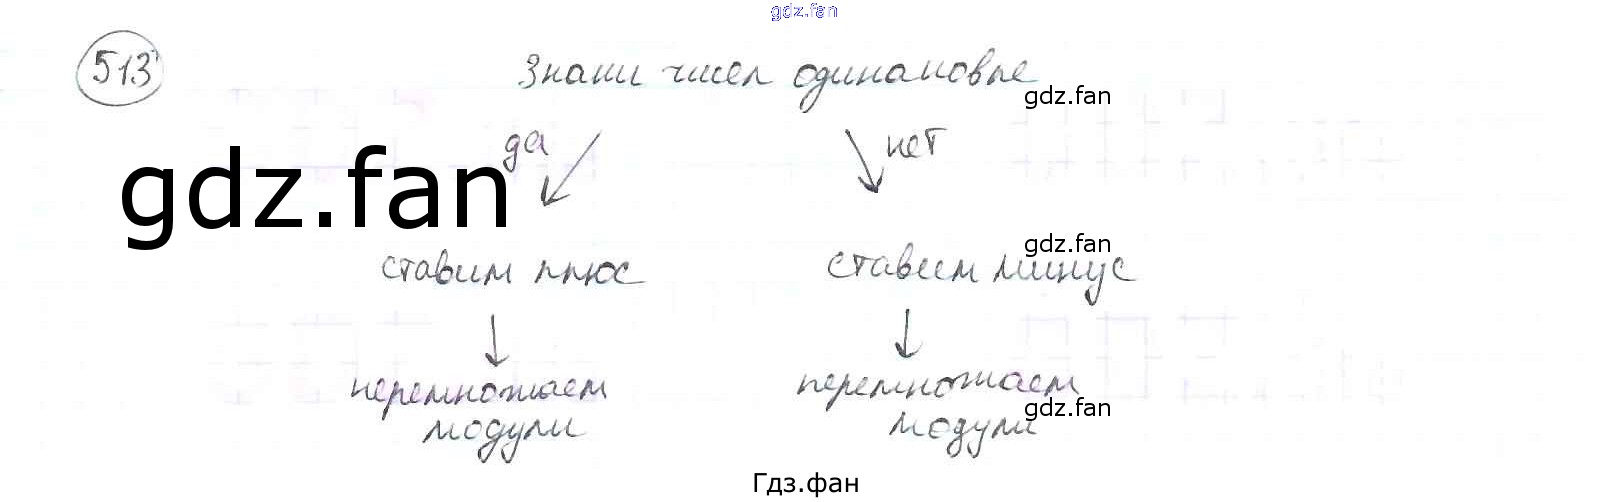 gdz.fan
513
Знаки чисел одинаковые
gdz.fan
да
нет
gdz.fan
gdz.fan
ставим плюс
ставим минус
перемножаем
перемножаем
gdz.fan
модули
модули
Гдз.фан